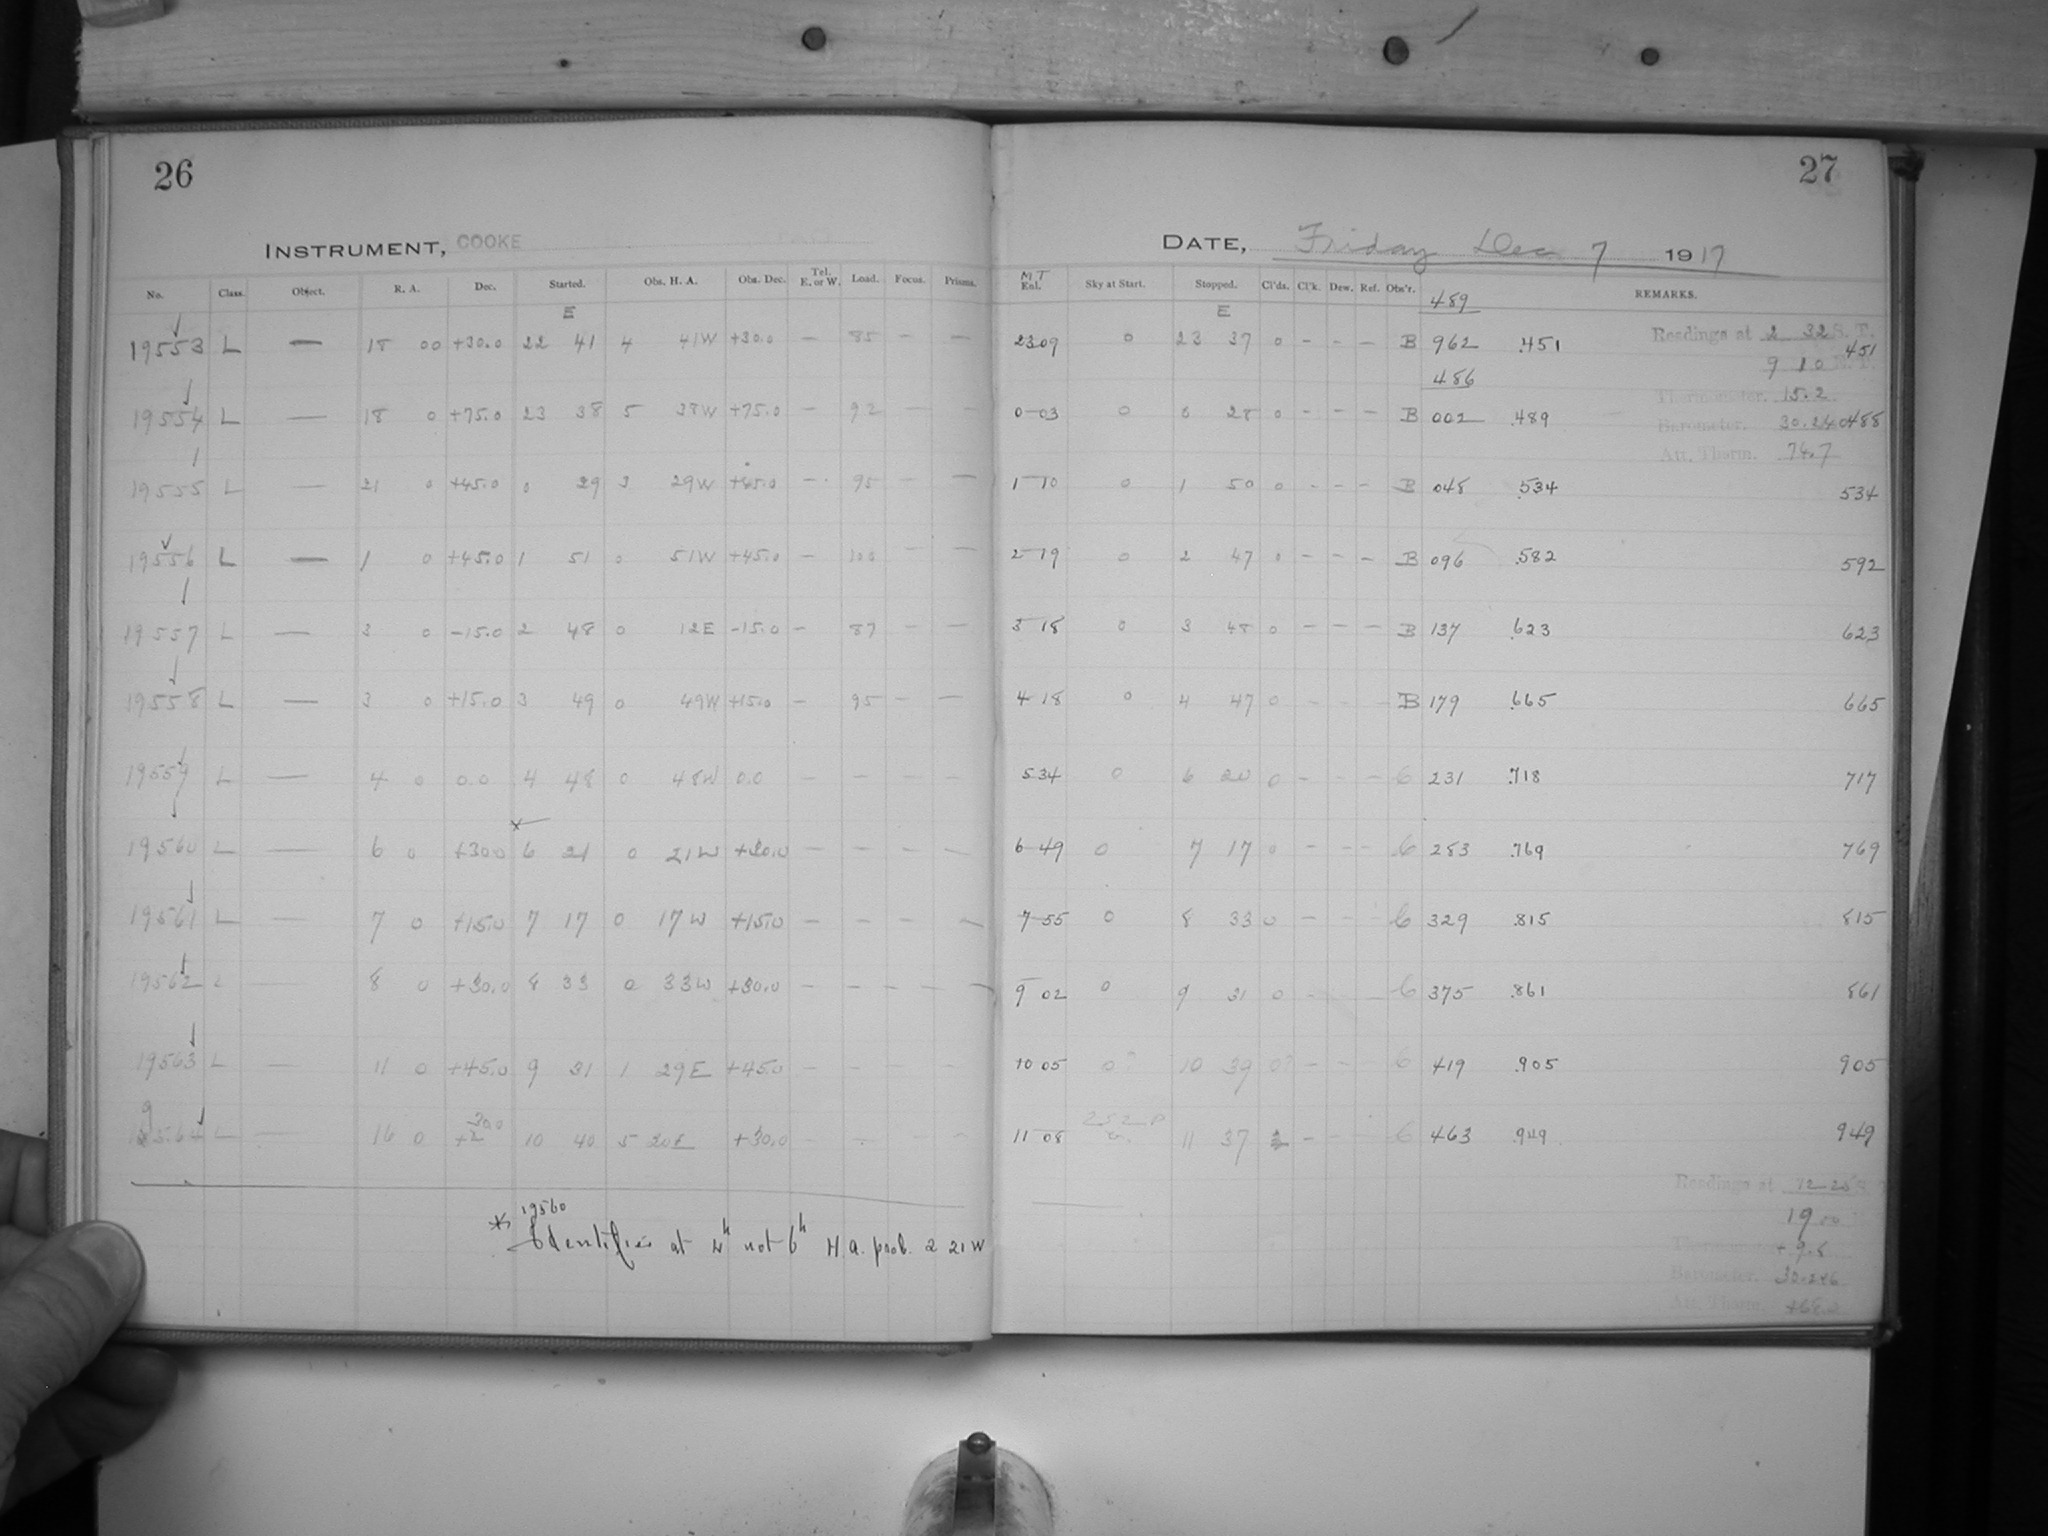 26
INSTRUMENT, COOKE
No. Class. Object. R. A. Dec. Started. Obs. H. A. Obs. Dec. Tel. E. or W. Load. Focus. Prisms.
E
19553 L — 18 00 +30.0 22 41 4 41W +30.0 — 85 — —
19554 L — 18 0 +75.0 23 38 5 38W +75.0 — 92 — —
19555 L — 21 0 +45.0 0 29 3 29W +45.0 — 95 — —
19556 L — 1 0 +45.0 1 51 0 51W +45.0 — 100 — —
19557 L — 3 0 -15.0 2 48 0 12E -15.0 — 87 — —
19558 L — 3 0 +15.0 3 49 0 49W +15.0 — 95 — —
19559 L — 4 0 0.0 4 48 0 48W 0.0 — — — —
19560 L — 6 0 +30.0 6 21 0 21W +30.0 — — — —
19561 L — 7 0 +15.0 7 17 0 17W +15.0 — — — —
19562 L — 8 0 +30.0 8 33 0 33W +30.0 — — — —
19563 L — 11 0 +45.0 9 31 1 29E +45.0 — — — —
19564 L — 16 0 +30.0 10 40 5 20E +30.0 — — — —
* 19560
Identifies at 4h not 6h H.A. prob. 2 21W
27
DATE, Friday Dec 7 1917
M T
Enl. Sky at Start. Stopped. Cl'ds. Cl'k. Dew. Ref. Obs'r. REMARKS.
E 489
23 09 0 23 37 0 - - - B 962 .451 Readings at 2 32 S. T. 451
9 10
486
Thermometer. 15.2
0-03 0 0 28 0 - - - B 002 .489 Barometer. 30.240 488
Att. Therm. 74.7
1-10 0 1 50 0 - - - B 048 .534 534
2-19 0 2 47 0 - - - B 096 .582 592
3-18 0 3 48 0 - - - B 137 .623 623
4-18 0 4 47 0 - - - B 179 .665 665
5 34 0 6 20 0 - - - C 231 .718 717
6-49 0 7 17 0 - - - C 283 .769 769
7-55 0 8 33 0 - - - C 329 .815 815
9 02 0 9 31 0 - - - C 375 .861 861
10 05 0? 10 39 0? - - - C 419 .905 905
11-08 11 37 2 - - - C 463 .949 949
Readings at 12-25
19 00
+9.8
Barometer.
Att. Therm.